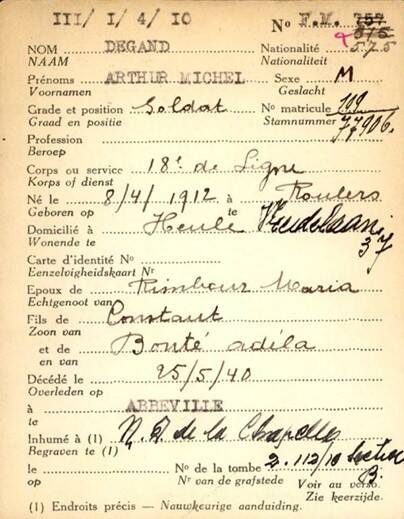 III/ I/4/ I0
No F.M. 757
575
NOM DEGAND Nationalité 575
NAAM Nationaliteit
Prénoms ARTHUR MICHEL Sexe M
Voornamen Geslacht
Grade et position Soldat No matricule 199
Graad en positie Stamnummer 77906.
Profession
Beroep
Corps ou service 18e de Ligne
Korps of dienst
Né le 8/4/1912 à Roulers
Geboren op te
Domicilié à Heule
Wonende te 37
Carte d'identité No
Eenzelvigheidskaart Nr
Epoux de Maria
Echtgenoot van
Fils de Constant
Zoon van
et de Bonté adéla
en van
Décédé le 25/5/40
Overleden op
à ABBEVILLE
te
Inhumé à (1) N. D. de la Chapelle
Begraven te (1)
le No de la tombe 2.112/10 Section
op Nr van de grafstede B.
Voir au verso.
Zie keerzijde.
(1) Endroits précis — Nauwkeurige aanduiding.